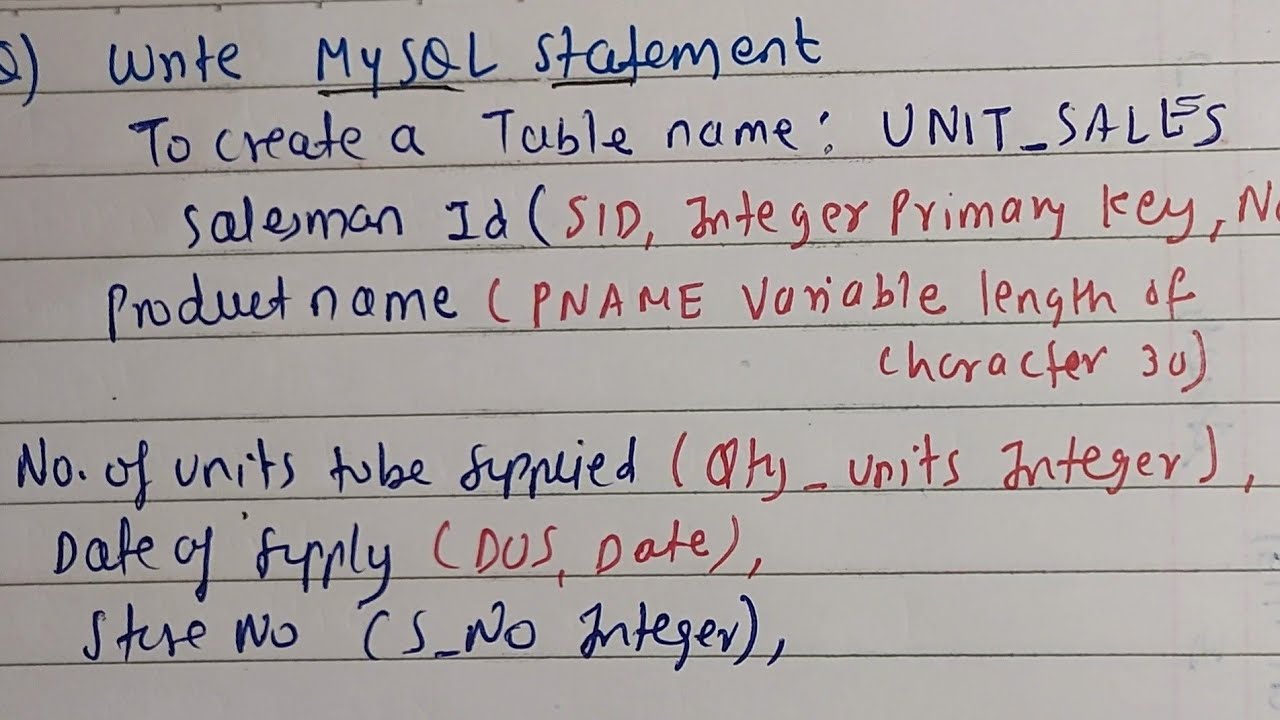 Q) Write MySQL Statement
To create a Table name: UNIT_SALES
Salesman Id (SID, Integer Primary Key, No
Product name (PNAME Variable length of
character 30)
No. of units to be supplied (Qty_units Integer),
Date of supply (DOS, Date),
Store No (S_No Integer),